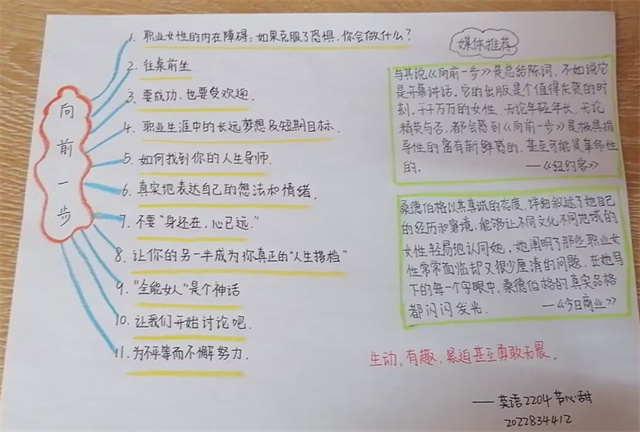 向前一步
1. 职业女性的内在障碍：如果克服了恐惧，你会做什么？
2. 往桌前坐
3. 要成功，也要受欢迎.
4. 职业生涯中的长远梦想及短期目标.
5. 如何找到你的人生导师.
6. 真实地表达自己的想法和情绪.
7. 不要"身还在，心已远."
8. 让你的另一半成为你真正的"人生搭档"
9. "全能女人"是个神话
10. 让我们开始讨论吧.
11. 为平等而不懈努力.
媒体推荐
与其说《向前一步》是总结陈词，不如说它
是开幕讲话，它的出版是个值得庆贺的时
刻，千千万万的女性，无论年轻年长，无论
精英与否，都会感到《向前一步》是极具指
导性的富有新鲜感的，甚至可能是革命性
的. ——《纽约客》
桑德伯格以其真诚的态度，详细叙述了她自己
的经历和窘境，能够让不同文化不同地域的
女性轻易地认同她，她阐明了那些职业女
性常常面临却又很少厘清的问题，在她写
下的每一个字眼中，桑德伯格的真实品格
都闪闪发光. ——《今日商业》
生动，有趣，紧迫甚至勇敢无畏.
——英语2204 心甜
2022834412